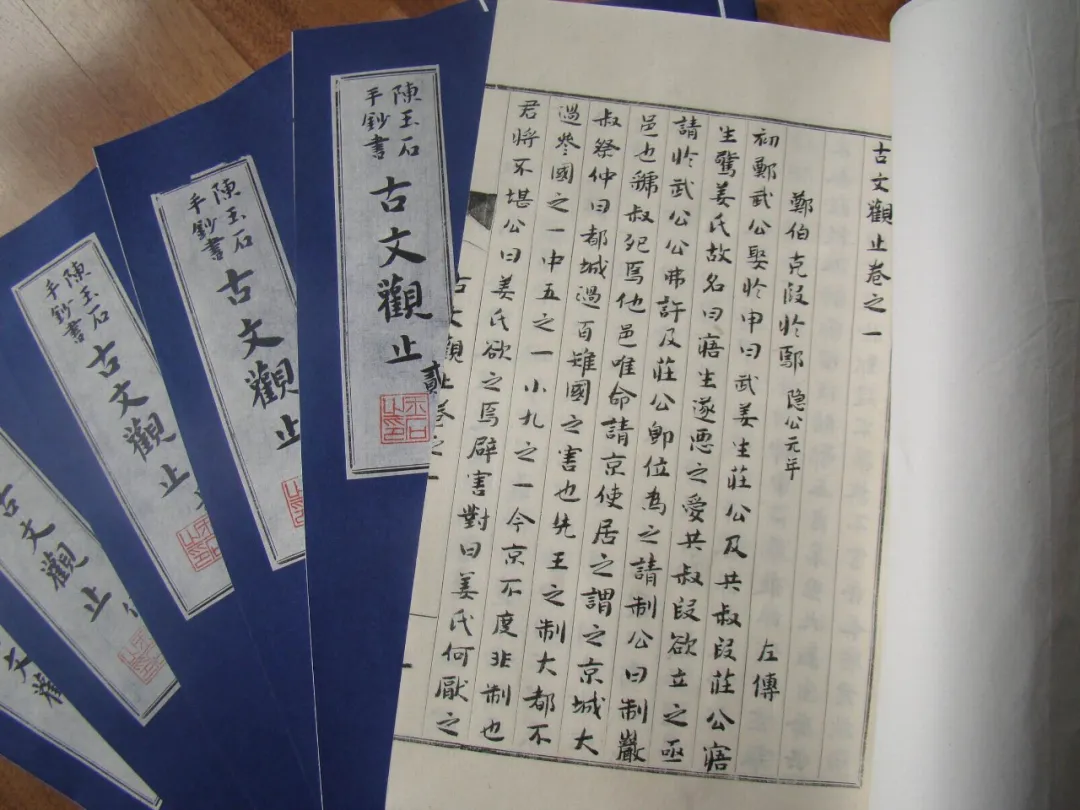 古文觀止卷之一
鄭伯克段於鄢 隱公元年 左傳
初鄭武公娶於申曰武姜生莊公及共叔段莊公寤
生驚姜氏故名曰寤生遂惡之愛共叔段欲立之亟
請於武公公弗許及莊公即位為之請制公曰制巖
邑也虢叔死焉他邑唯命請京使居之謂之京城大
叔祭仲曰都城過百雉國之害也先王之制大都不
過參國之一中五之一小九之一今京不度非制也
君將不堪公曰姜氏欲之焉辟害對曰姜氏何厭之
古文觀止卷之一
一
陳玉石
手鈔書
古文觀止
貳
陳玉石
手鈔書
古文觀止
陳玉石
手鈔書
古文觀止
古文觀止
文觀